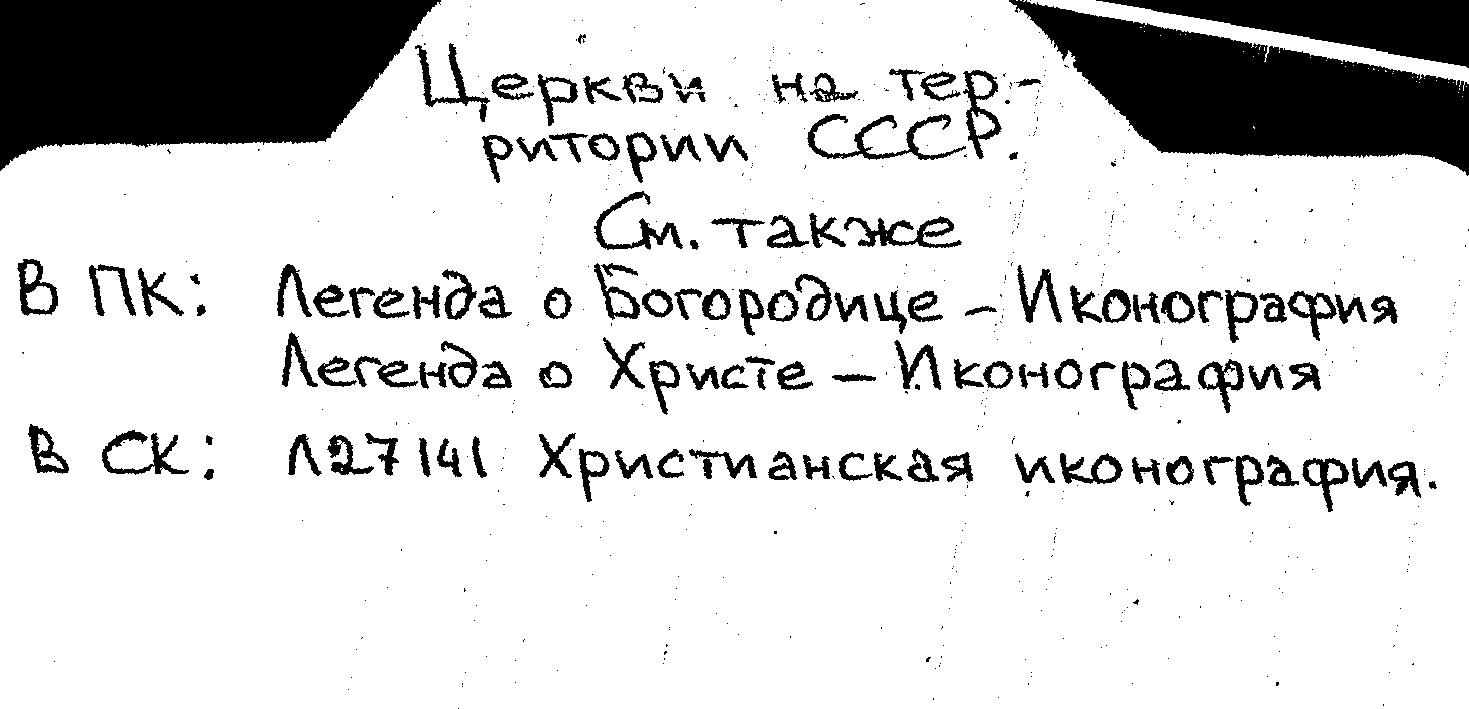 Церкви на тер-
ритории СССР.
См. также
В ПК: Легенда о Богородице – Иконография
Легенда о Христе – Иконография
В СК: Л27141 Христианская иконография.